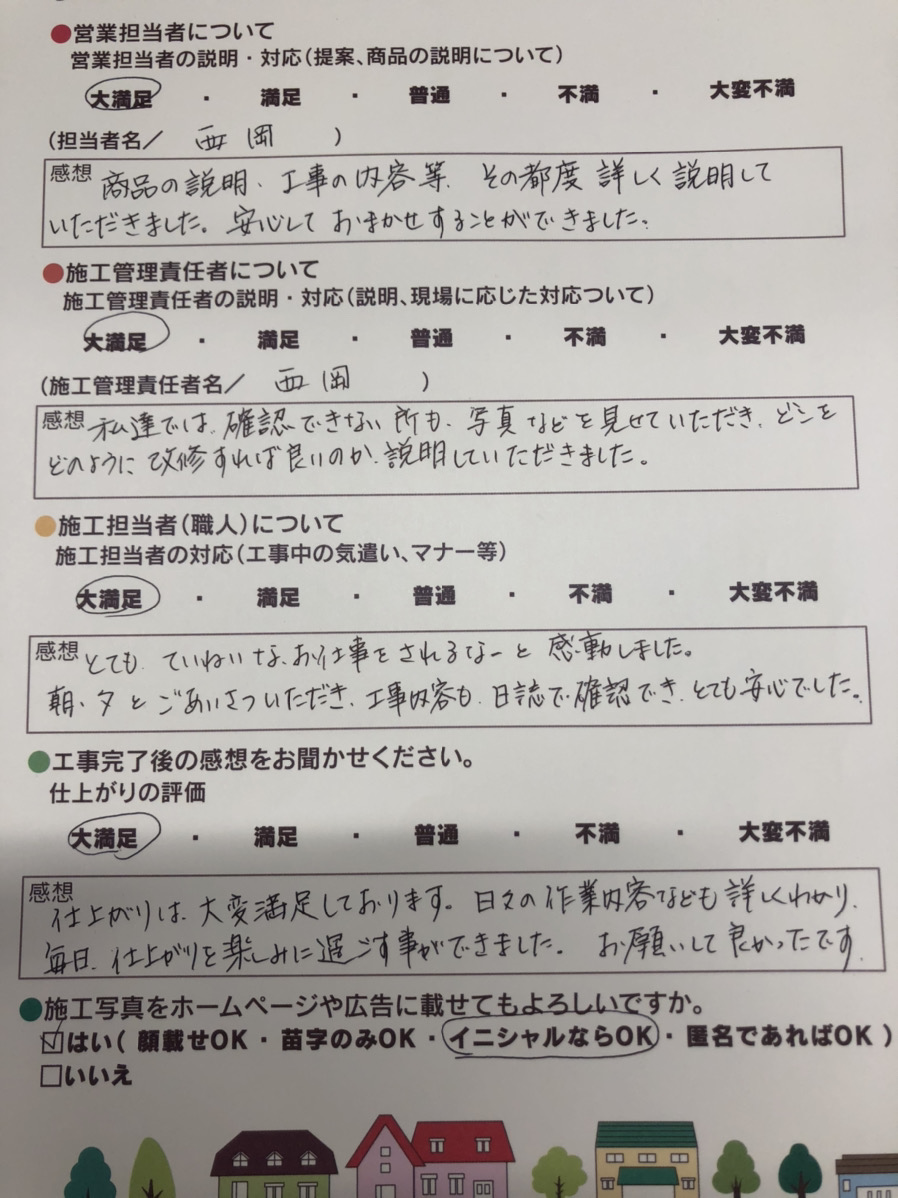 ●営業担当者について
営業担当者の説明・対応(提案、商品の説明について)
大満足 ・ 満足 ・ 普通 ・ 不満 ・ 大変不満
(担当者名／ 西岡 )
感想 商品の説明、工事の内容等、その都度 詳しく説明して
いただきました。安心して おまかせすることができました。
●施工管理責任者について
施工管理責任者の説明・対応(説明、現場に応じた対応ついて)
大満足 ・ 満足 ・ 普通 ・ 不満 ・ 大変不満
(施工管理責任者名／ 西岡 )
感想 私達では、確認できない所も、写真などを見せていただき、どこを
どのように改修すれば良いのか、説明していただきました。
●施工担当者(職人)について
施工担当者の対応(工事中の気遣い、マナー等)
大満足 ・ 満足 ・ 普通 ・ 不満 ・ 大変不満
感想 とても、ていねいな、お仕事をされるなーと 感動しました。
朝、夕とごあいさついただき、工事内容も、日誌で確認でき、とても安心でした。
●工事完了後の感想をお聞かせください。
仕上がりの評価
大満足 ・ 満足 ・ 普通 ・ 不満 ・ 大変不満
感想 仕上がりは、大変満足しております。日々の作業内容なども詳しくわかり、
毎日、仕上がりを楽しみに過ごす事ができました。 お願いして良かったです。
●施工写真をホームページや広告に載せてもよろしいですか。
☑はい( 顔載せOK ・ 苗字のみOK ・ イニシャルならOK ・ 匿名であればOK )
□いいえ